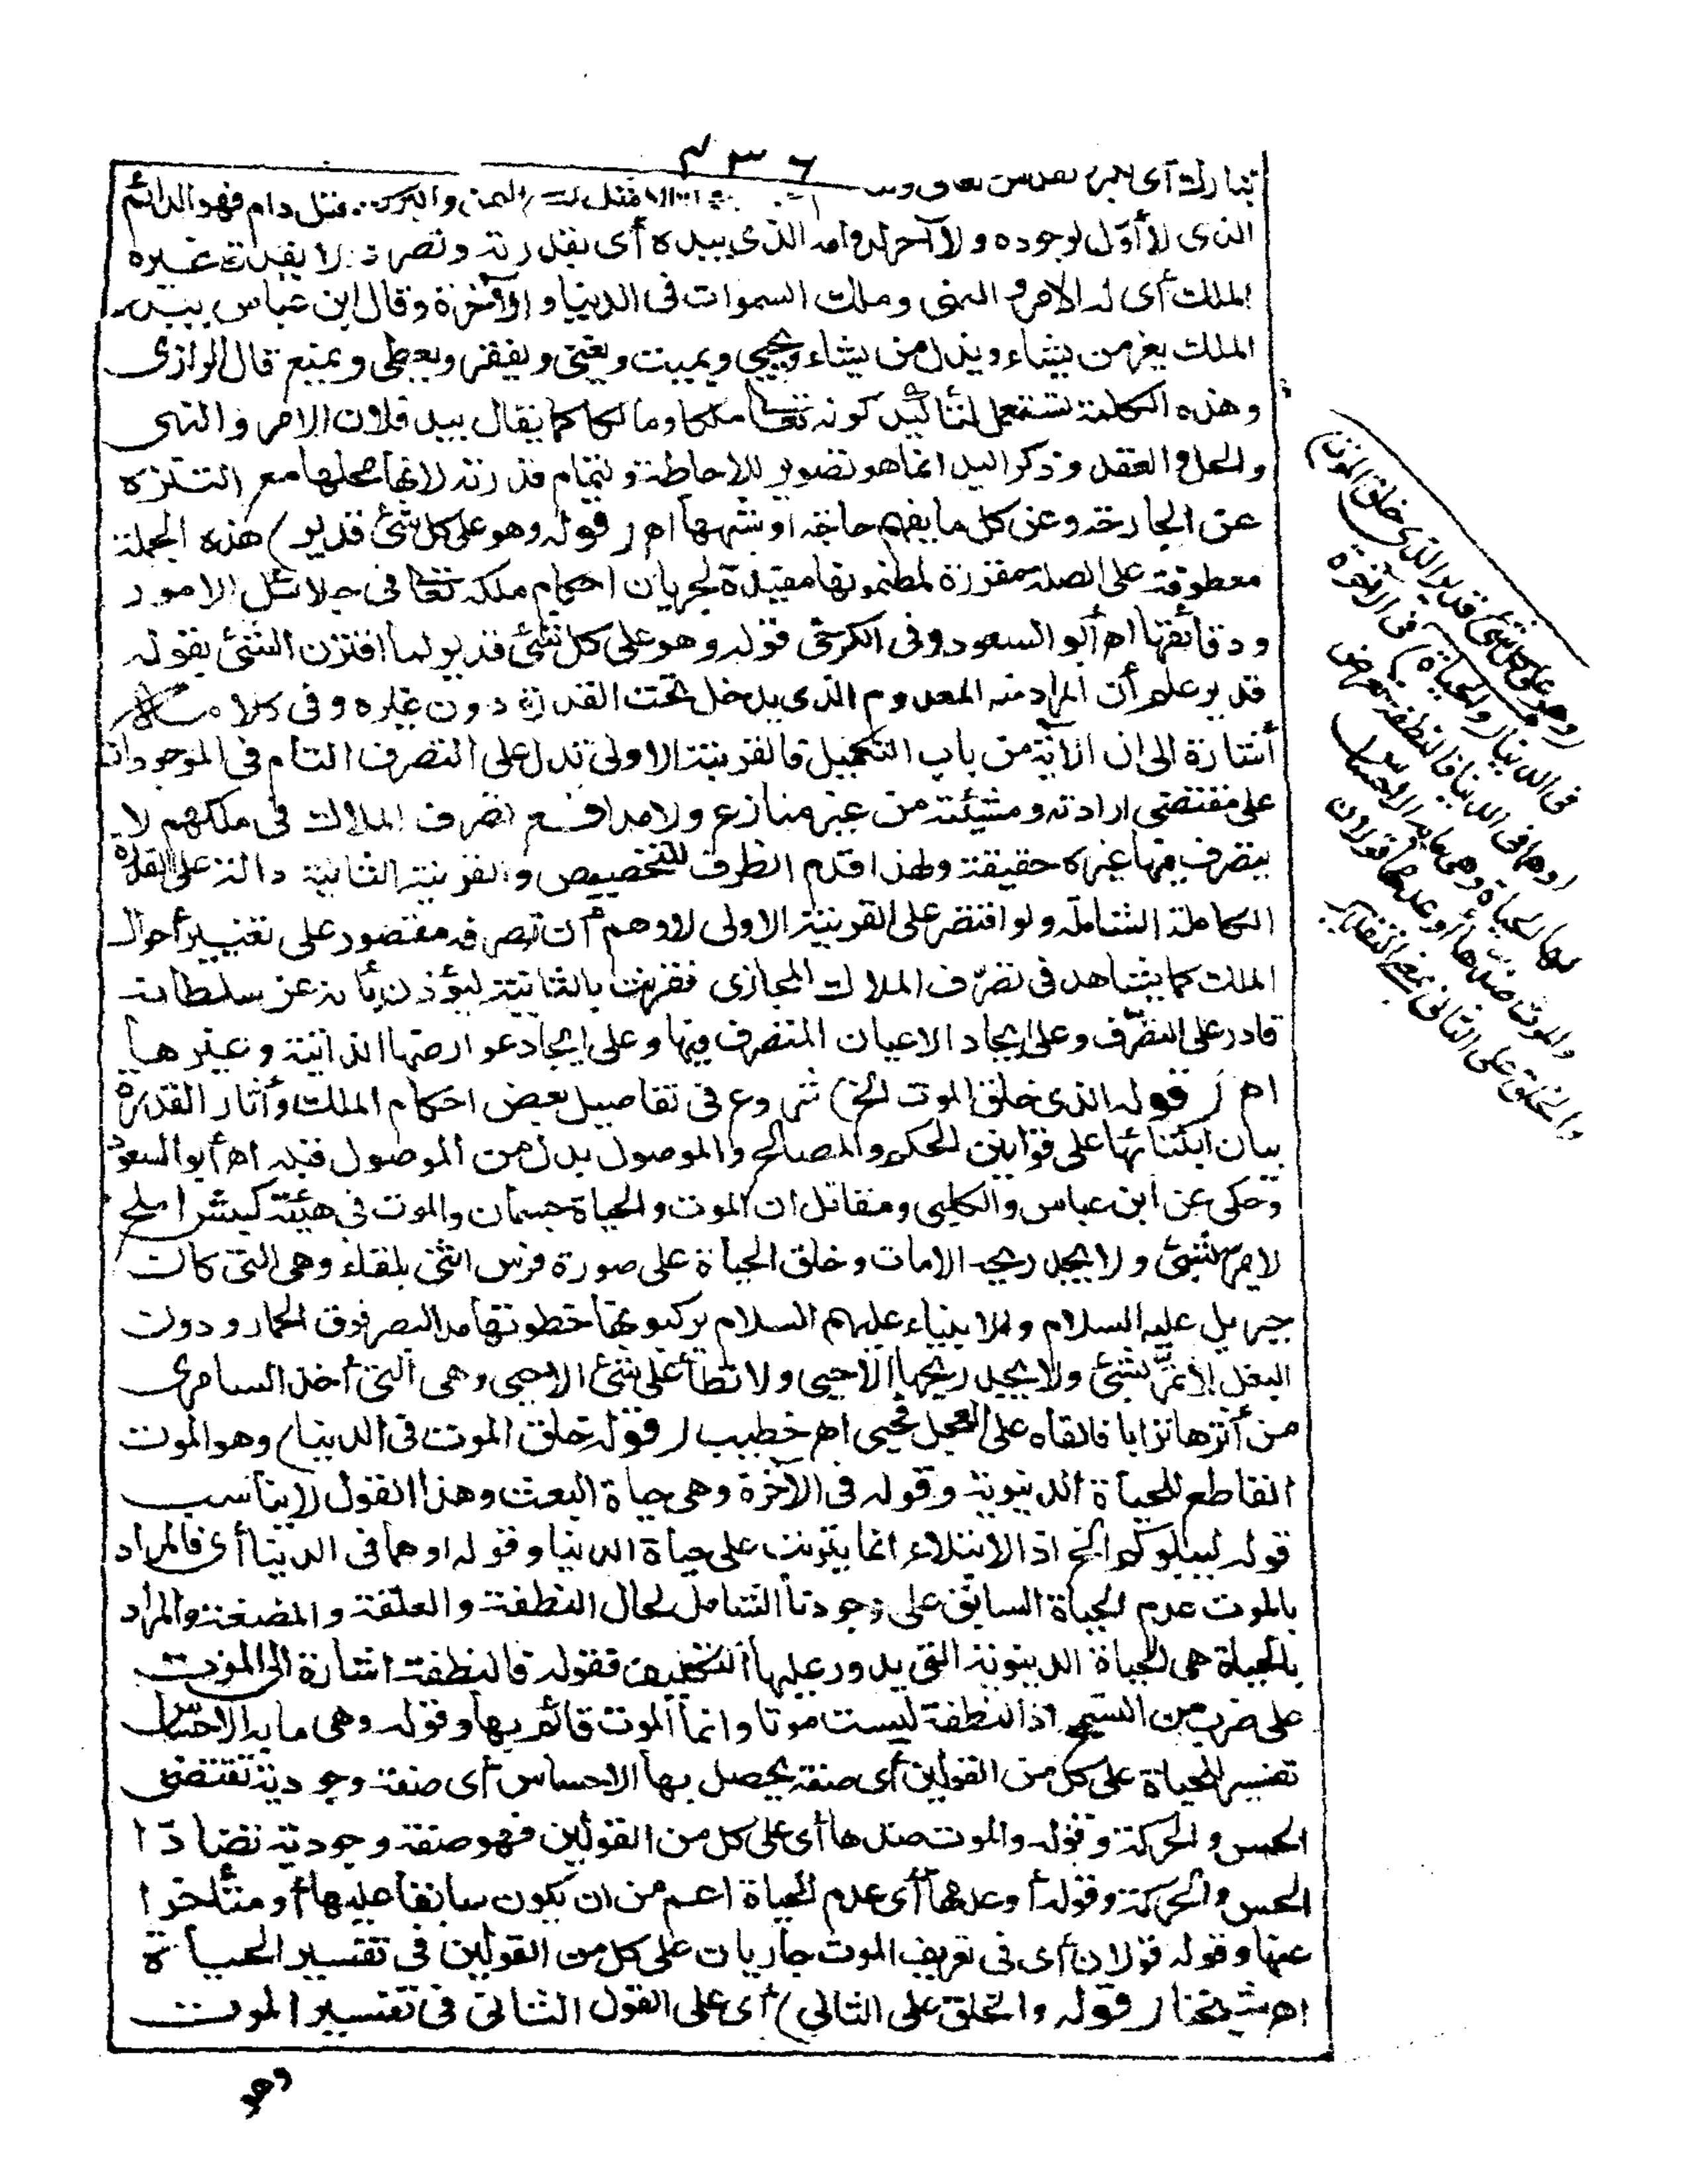 ٤٣٦
تبارك أى تعالى
فهو الدائم
الذى لا أول لوجوده ولا آخر لدوامه الذى بيده أى بقدرته وتصرفه لا بقدرة غيره
الملك أى له الامر والنهى وملك السموات فى الدنيا والآخرة وقال ابن عباس بيده
الملك يعز من يشاء ويذل من يشاء ويحيي ويميت ويغنى ويفقر ويعطى ويمنع قال الرازى
وهذه الكلمة تستعمل لتأكيد كونه تعا ملكا ومالكا كما يقال بيد فلان الامر والنهى
والحل والعقد وذكر اليد انما هو تصوير للاحاطة ولتمام قدرته لانها محلها مع التنزه
عن الجارحة وعن كل ما يفهم حاجة او شبهها اه (قوله وهو على كل شئ قدير) هذه الجملة
معطوفة على الصلة مقررة لمضمونها مفيدة لجريان احكام ملكه تعا فى جلائل الامور
ودقائقها اه أبو السعود وفى الكرخى قوله وهو على كل شئ قدير لما اقترن الشئ بقوله
قدير علم أن المراد منه المعدوم الذى يدخل تحت القدرة دون غيره وفى كلامه
أشارة الى ان الآية من باب التكميل فالقرينة الاولى تدل على التصرف التام فى الموجودات
على مقتضى ارادته ومشيئته من غير منازع ولا مدافع تصرف الملاك فى ملكهم لا
يتصرف فيها غيره حقيقة ولهذا قدم الظرف للتخصيص والقرينة الثانية دالة على القدرة
الكاملة الشاملة ولو اقتصر على القرينة الاولى لاوهم أن تصرفه مقصور على تغيير أحوال
الملك كما يشاهد فى تصرّف الملاك المجازى فقرنت بالثانية ليؤذن بأنه عز سلطانه
قادر على التصّرف وعلى ايجاد الاعيان المتصرف فيها وعلى ايجاد عوارضها الذاتية وغيرها
اه (قوله الذى خلق الموت الخ) شروع فى تفاصيل بعض احكام الملك وأثار القدرة
بيان ابتنائها على قوانين الحكم والمصالح والموصول بدل من الموصول قبله اه أبو السعود
وحكى عن ابن عباس والكلبى ومقاتل ان الموت والحياة جسمان والموت فى هيئة كبش املح
لا يمر بشئ ولا يجد ريحه الامات وخلق الحياة على صورة فرس انثى بلقاء وهى التى كان
جبريل عليه السلام والانبياء عليهم السلام يركبونها خطوتها مد البصر فوق الحمار ودون
البغل لا تمرّ بشئ ولا يجد ريحها الاحيى ولا تطأ على شئ الاحيى وهى التى أخذ السامرى
من أثرها ترابا فالقاه على العجل فحيى اه خطيب (قوله خلق الموت فى الدنيا) وهو الموت
القاطع للحياة الدنيوية وقوله فى الآخرة وهى حياة البعث وهذا القول لا يناسب
قوله ليبلوكم الخ اذ الابتلاء انما يترتب على حياة الدنيا وقوله او هما فى الدنيا أى فالمراد
بالموت عدم الحياة السابق على وجودنا الشامل لحال النطفة والعلقة والمضغة والمراد
بالحياة هى الحياة الدنيوية التى يدور عليها التكليف فقوله فالنطفة اشارة الى الموت
على ضرب من التسمح اذ النطفة ليست موتا وانما الموت قائم بها وقوله وهى ما به الاحساس
تفسير للحياة على كل من القولين أى صفة يحصل بها الاحساس أى صفة وجودية تقتضى
الحس والحركة وقوله والموت ضدها أى على كل من القولين فهو صفة وجودية تضادّ ا
الحس والحركة وقوله أو عدمها أى عدم الحياة اعم من ان يكون سابقا عليها أو متأخرا
عنها وقوله قولان أى فى تعريف الموت جاريان على كل من القولين فى تفسير الحياة
اه شيخنا (قوله والخلق على الثانى) أى على القول الثانى فى تفسير الموت
وهو
(وهو على كل شئ قدير الذى خلق الموت)
فى الدنيا (والحياة) فى الآخرة
او هما فى الدنيا فالنطفة تعرض
لها الحياة وهى ما به الاحساس
والموت ضدها أو عدمها قولان
والخلق على الثانى بمعنى التقدير